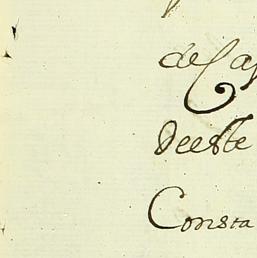 de Ca
deeste
Consta